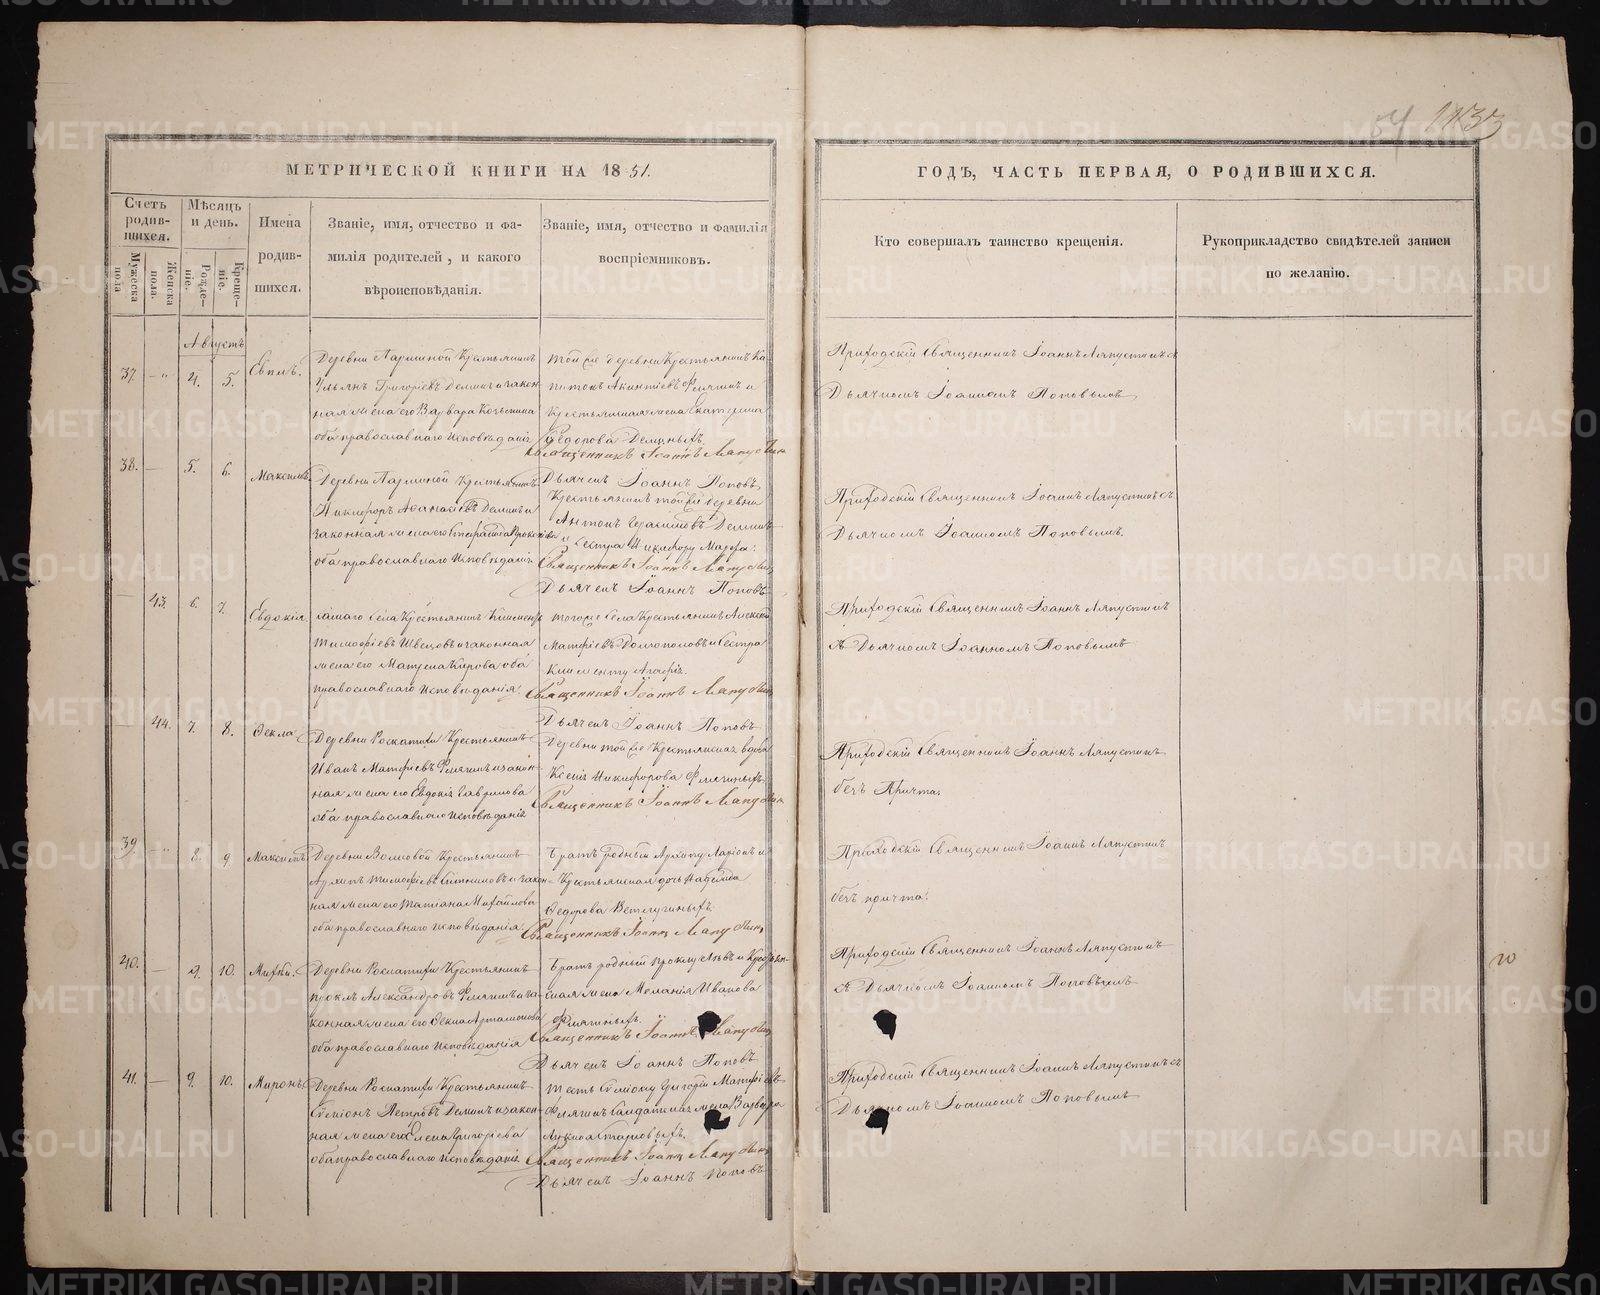 54 1133
МЕТРИЧЕСКОЙ КНИГИ НА 1851.
ГОДЪ, ЧАСТЬ ПЕРВАЯ, О РОДИВШИХСЯ.
Счетъ родив-шихся.
Мужеска пола
Женска пола.
Мѣсяцъ и день.
Рожде-ніе.
Креще-ніе.
Имена
родив-
шихся.
Званіе, имя, отчество и фа-
милія родителей, и какого
вѣроисповѣданія.
Званіе, имя, отчество и фамилія
воспріемниковъ.
Кто совершалъ таинство крещенія.
Рукоприкладство свидѣтелей записи
по желанію.
Августъ
37. 4. 5. Евплъ.
Деревни Крестьянинъ
Ульянъ Григорьевъ Деминъ и закон-
ная жена его Варвара
оба православнаго исповѣданія
той же деревни Крестьянинъ Ка-
питонъ и
Крестьянская жена Екатерина
Ѳедорова Деминыхъ.
Священникъ Іоаннъ Ляпустин
Дьячекъ Іоаннъ Поповъ
Приходскій Священникъ Іоаннъ Ляпустинъ съ
Дьячкомъ Іоанномъ Поповымъ
38. 5. 6. Максимъ
Деревни Крестьянинъ
Никифоръ Аѳанасіевъ Деминъ и
законная жена его
оба православнаго исповѣданія
Крестьянинъ той же деревни
Антонъ Герасимовъ Деминъ
и сестра Никифору Марфа.
Священникъ Іоаннъ Ляпустин
Дьячекъ Іоаннъ Поповъ
Приходскій Священникъ Іоаннъ Ляпустинъ съ
Дьячкомъ Іоанномъ Поповымъ.
43. 6. 7. Евдокія
самаго села Крестьянинъ Климентъ
Тимофѣевъ Швецовъ и законная
жена его Матрена Кирова оба
православнаго исповѣданія
того же села Крестьянинъ Алексѣй
Матфіевъ Долгополовъ и сестра
Клименту Агафія.
Священникъ Іоаннъ Ляпустин
Дьячекъ Іоаннъ Поповъ
Приходскій Священникъ Іоаннъ Ляпустинъ
съ Дьячкомъ Іоанномъ Поповымъ
44. 7. 8. Ѳекла
Деревни Роскатихи Крестьянинъ
Иванъ Матфіевъ Флягинъ и закон-
ная жена его Евдокія Гаврилова
оба православнаго исповѣданія
Деревни той же Крестьянская вдова
Ксенія Никифорова Флягиныхъ
Священникъ Іоаннъ Ляпустин
Приходскій Священникъ Іоаннъ Ляпустинъ
безъ Причта.
39. 8. 9. Максимъ
Деревни Волковой Крестьянинъ
Архипъ Тимофѣевъ Ситниковъ и закон-
ная жена его Татіана Михайлова
оба православнаго исповѣданія
Братъ родный Архипу Ларіонъ и
Крестьянская дочь Надежда
Ѳедорова Ветлугиныхъ
Священникъ Іоаннъ Ляпустин
Приходскій Священникъ Іоаннъ Ляпустинъ
безъ причта.
40. 9. 10. Михѣй.
Деревни Роскатихи Крестьянинъ
Проклъ Александровъ Флягинъ и за-
конная жена его Ѳекла Артамонова
оба православнаго исповѣданія
Братъ родный Проклу Левъ и Крестьян-
ская жена Меланія Иванова
Флягиныхъ.
Священникъ Іоаннъ Ляпустин
Дьячекъ Іоаннъ Поповъ
Приходскій Священникъ Іоаннъ Ляпустинъ
съ Дьячкомъ Іоанномъ Поповымъ
41. 9. 10. Миронъ
Деревни Роскатихи Крестьянинъ
Симіонъ Петровъ Деминъ и закон-
ная жена его Елена Григоріева
оба православнаго исповѣданія
Тесть Симіону Григорій Матфіевъ
Флягинъ и Солдатская жена Варвара
Священникъ Іоаннъ Ляпустин
Дьячекъ Іоаннъ Поповъ
Приходскій Священникъ Іоаннъ Ляпустинъ съ
Дьячкомъ Іоанномъ Поповымъ
METRIKI.GASO-URAL.RU